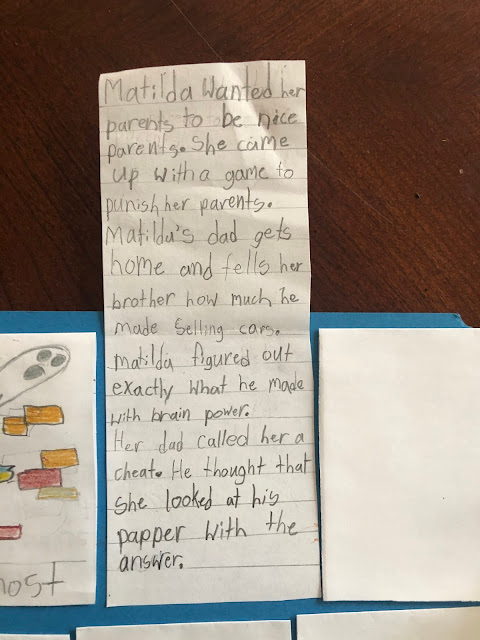 Matilda Wanted her
parents to be nice
parents. She came
up with a game to
punish her parents.
Matilda's dad gets
home and tells her
brother how much he
made selling cars.
Matilda figured out
exactly what he made
with brain power.
Her dad called her a
cheat. He thought that
she looked at his
papper with the
answer.